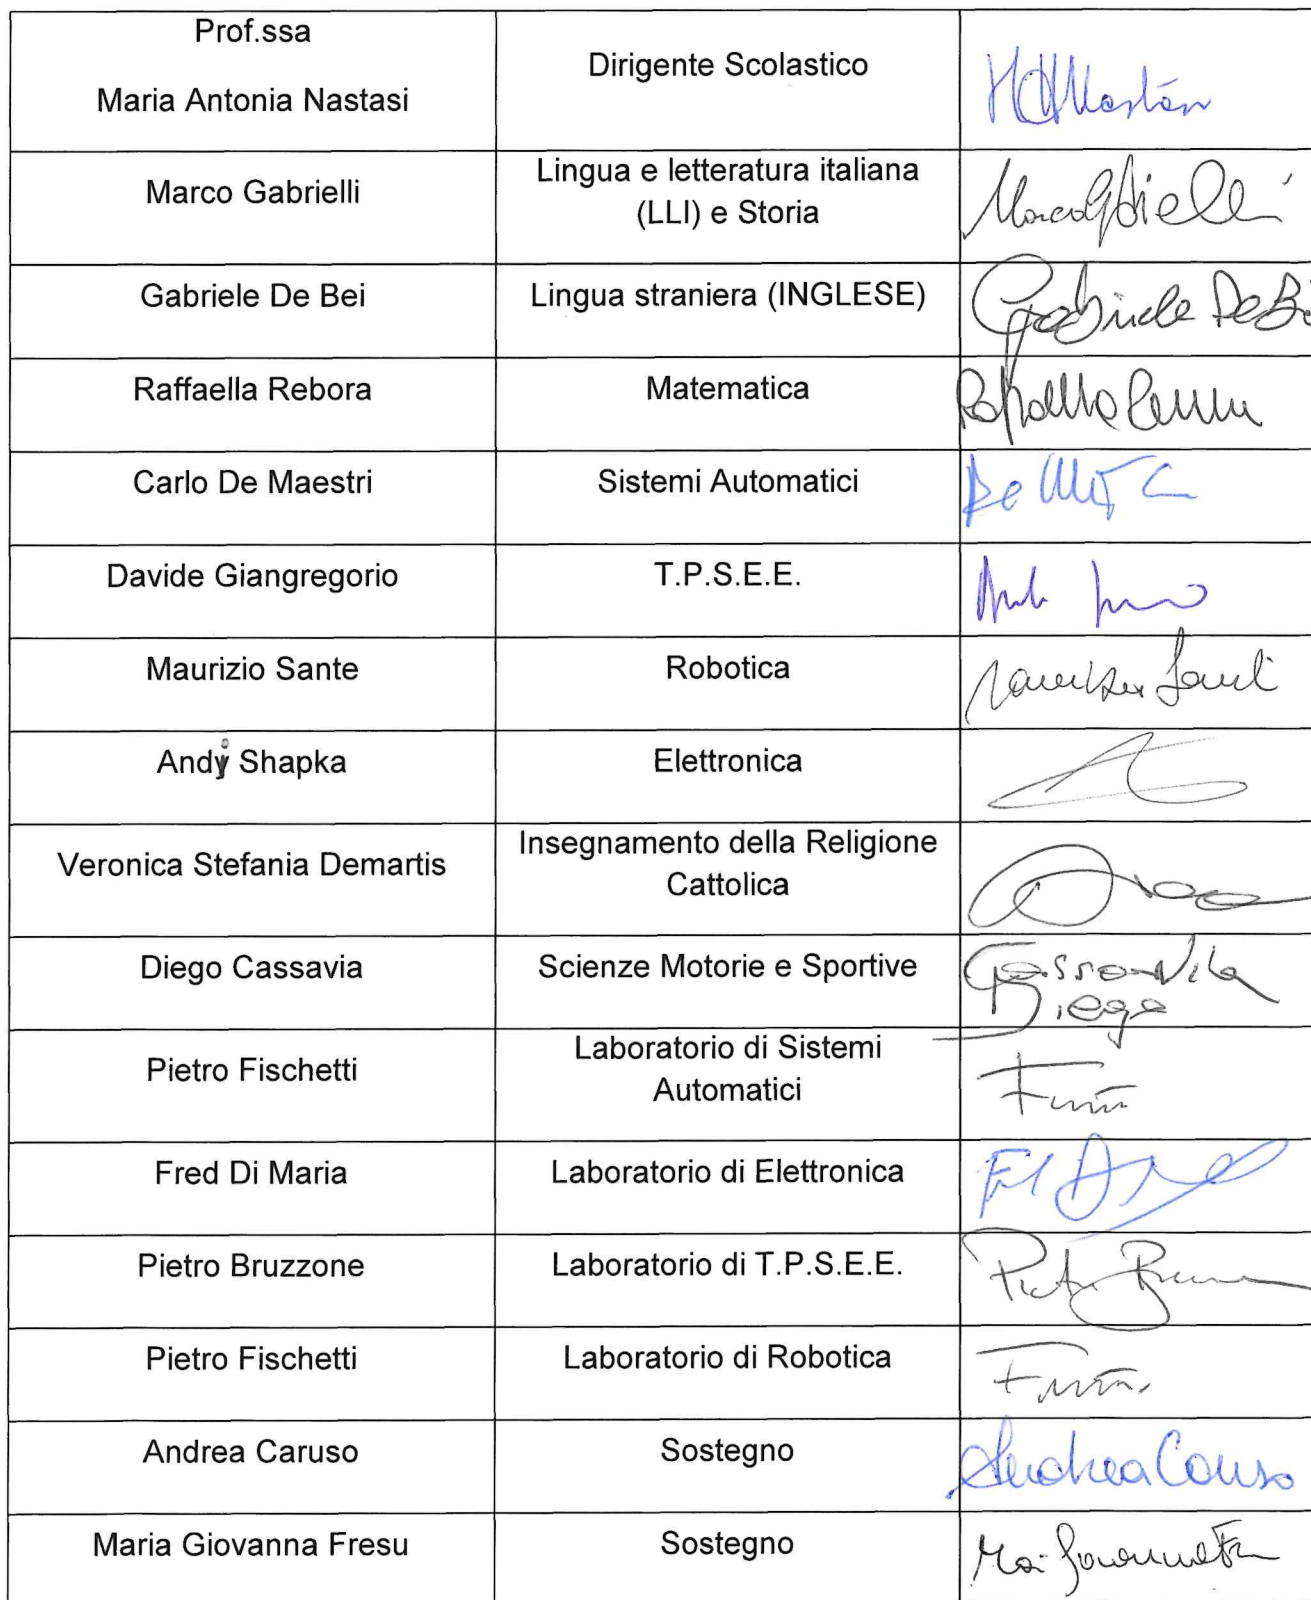 Prof.ssa
Maria Antonia Nastasi
Dirigente Scolastico
Marco Gabrielli
Lingua e letteratura italiana
(LLI) e Storia
Gabriele De Bei
Lingua straniera (INGLESE)
Gabriele De Bei
Raffaella Rebora
Matematica
Carlo De Maestri
Sistemi Automatici
Davide Giangregorio
T.P.S.E.E.
Maurizio Sante
Robotica
Andi Shapka
Elettronica
Veronica Stefania Demartis
Insegnamento della Religione
Cattolica
Diego Cassavia
Scienze Motorie e Sportive
Cassavia
Diego
Pietro Fischetti
Laboratorio di Sistemi
Automatici
Fred Di Maria
Laboratorio di Elettronica
Pietro Bruzzone
Laboratorio di T.P.S.E.E.
Pietro Fischetti
Laboratorio di Robotica
Andrea Caruso
Sostegno
Andrea Caruso
Maria Giovanna Fresu
Sostegno